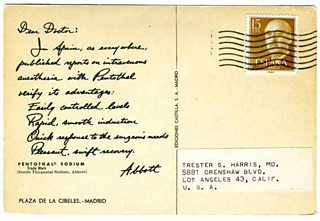 Dear Doctor:
In Spain, as everywhere,
published reports on intravenous
anesthesia with Pentothal
verify its advantages:
Easily controlled levels
Rapid, smooth induction
Quick response to the surgeon's needs
Pleasant, swift recovery.
Abbott
PENTOTHAL® SODIUM
Trade Mark
(Sterile Thiopental Sodium, Abbott)
PLAZA DE LA CIBELES.-MADRID
EDICIONES CASTILLA, S. A. - MADRID
15
CTS
ESPAÑA
TRESTER S. HARRIS, MD.
5881 CRENSHAW BLVD.
LOS ANGELES 43, CALIF.
U. S. A.